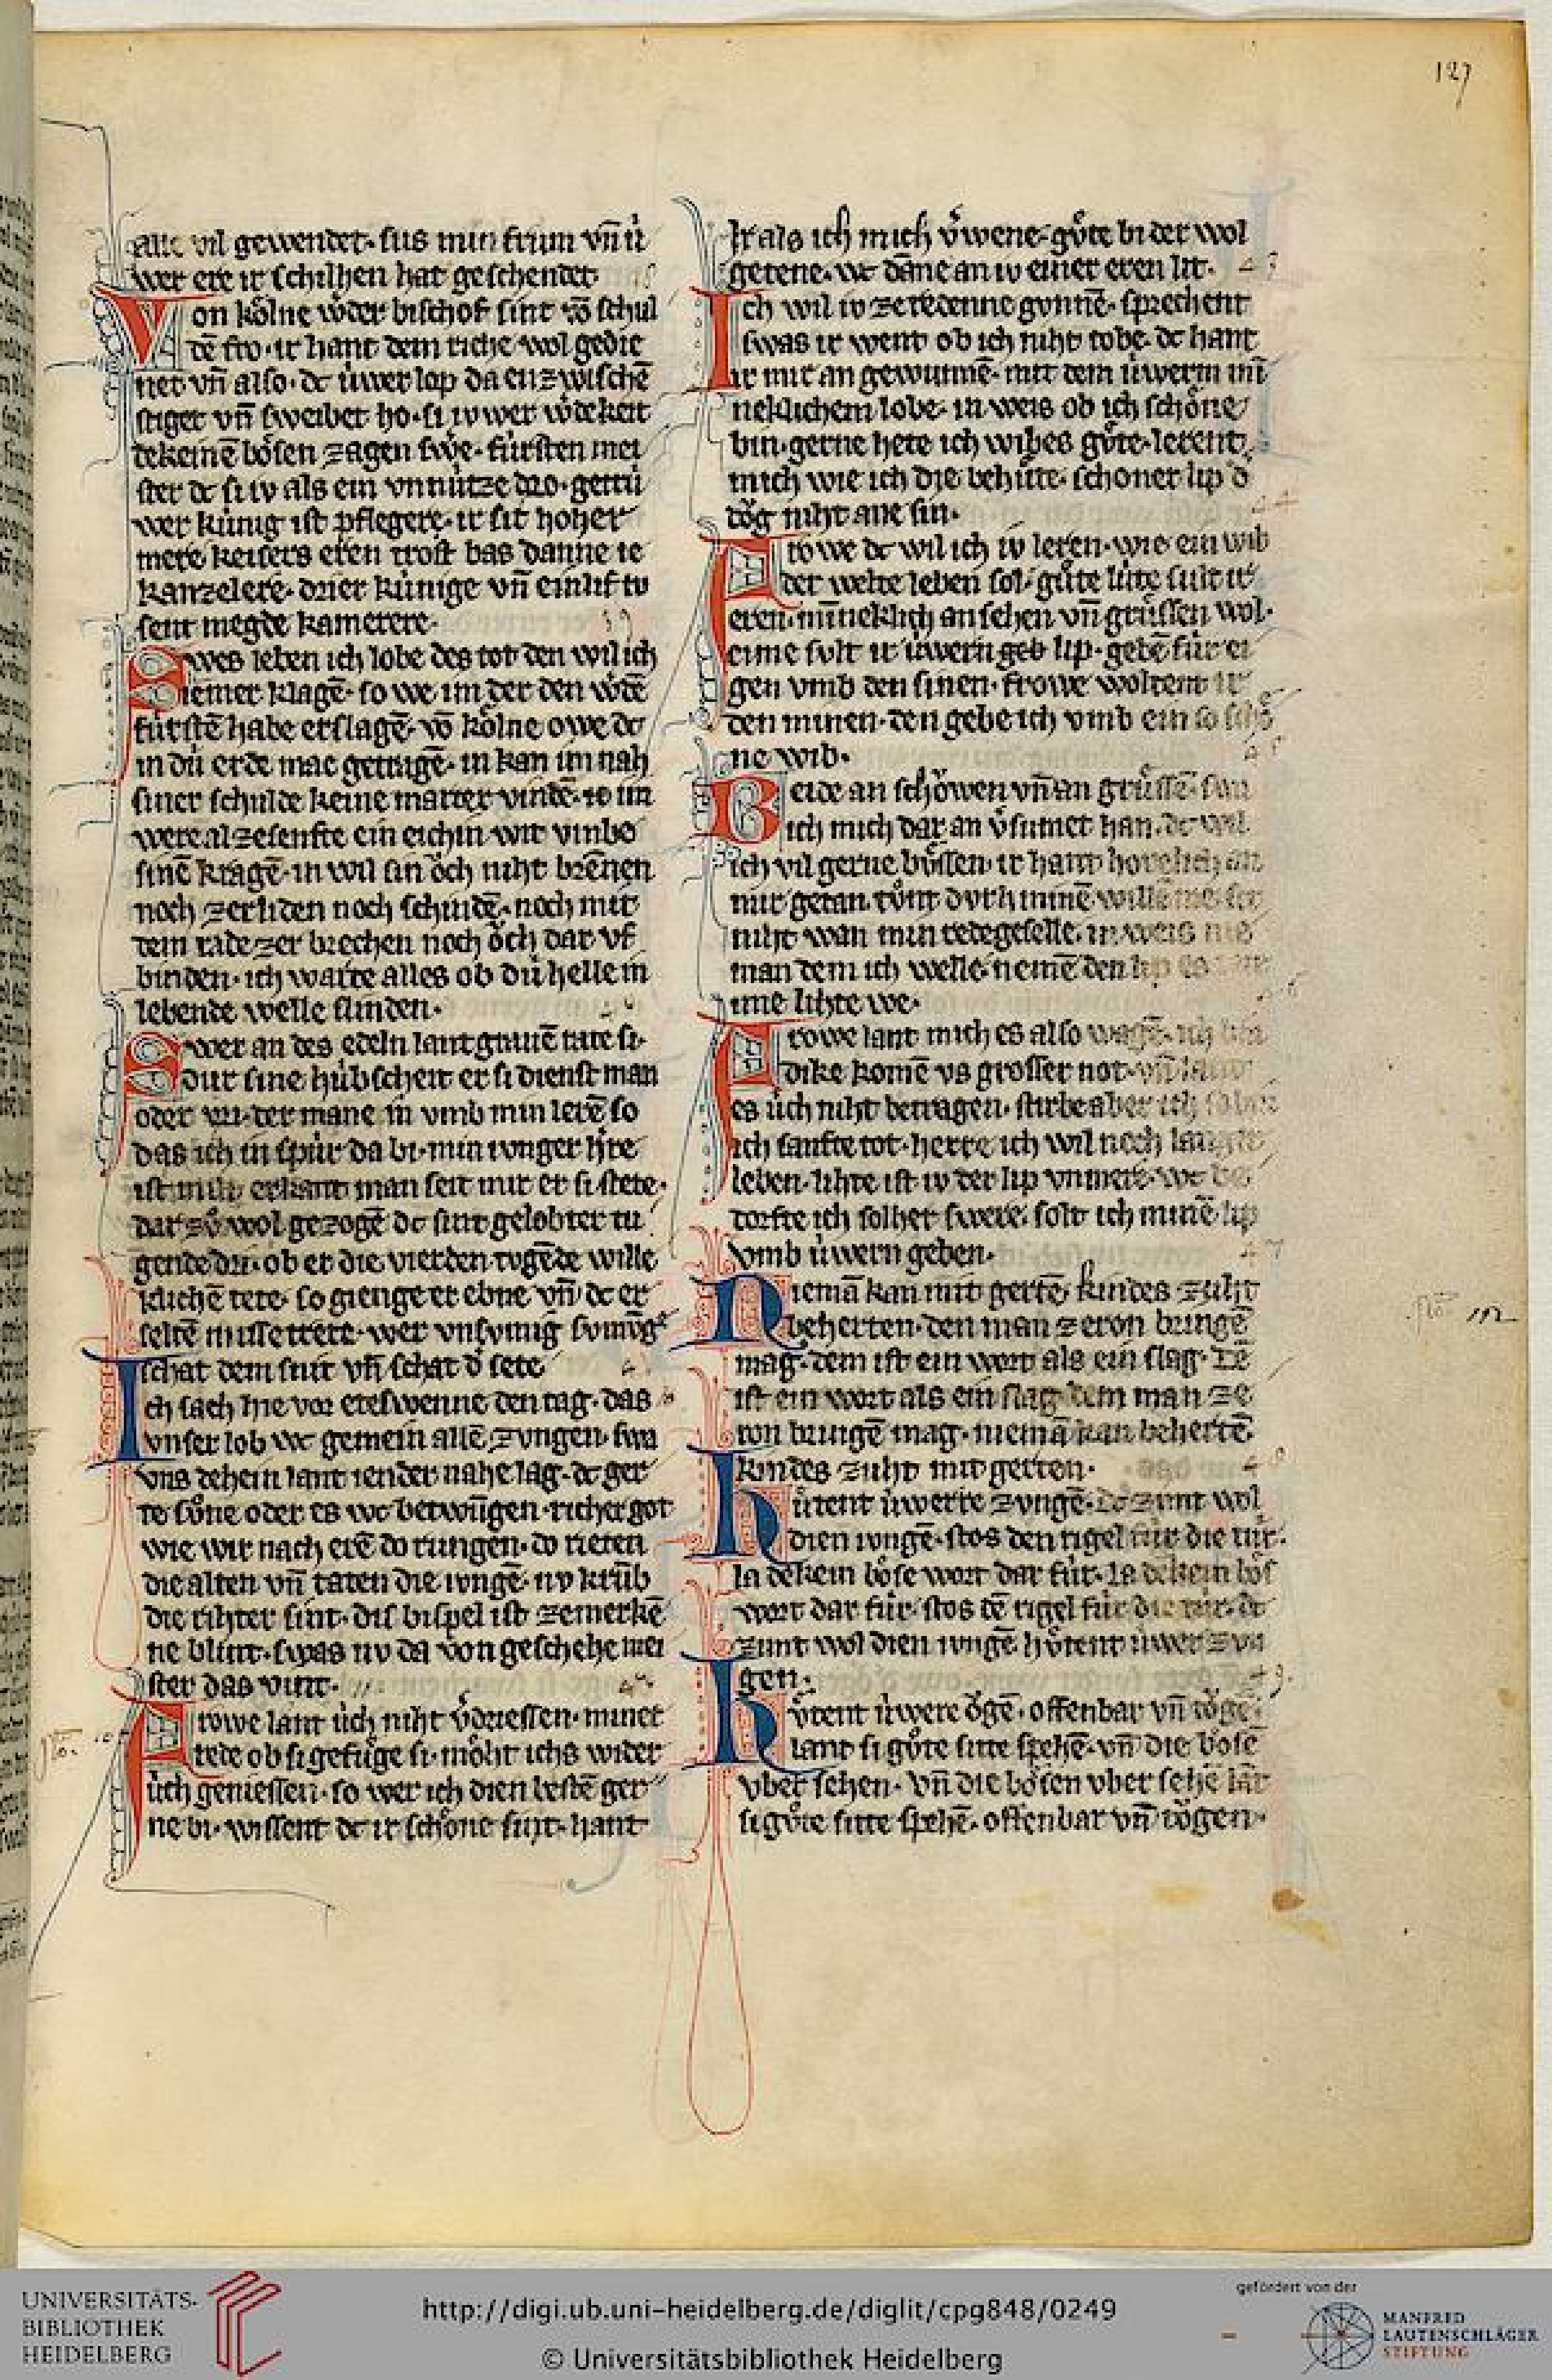 127
alle vil gewendet· sus min frun vn̄ ü
wer ere ir schilhen hat geschendet·
Von kölne wˀder bischof sint vō schul
dē fro· ir hant dem riche wol gedie
net vn̄ also· dc üwer lop da enzwischē
stiget vn̄ sweibet ho· si iv wer wˀdekeit
dekeinē bösen zagen swˀe· fürsten mei
ster dc si iv als ein vnnütze dro· getrü
wer künig ist pflegere· ir sit hoher
mere keisers eren trost bas danne ie
kanzelere· drier künige vn̄ einlif tv
sent megde kamerere·
Swes leben ich lobe des tot den wil ich
iemer klagē· so we im der den wˀdē
fürstē habe erslagē· vō kölne owe dc
in dü erde mac getragē· in kan im nah
siner schulde keine marter vindē· im
were al ze senfte ein eichin wit vmbe
sinē kragē· in wil sin öch niht brēnen
noch zerliden noch schindē· noch mit
dem rade zer brechen noch öch dar vf
binden· ich warte alles ob dü helle in
lebende welle slinden·
Swer an des edeln lantgrauē rate si·
dur sine hübscheit er si dienst man
oder vri· der mane in vmb min lerē so
das ich in spür da bi· min ivnger hˀre
ist milt erkant man seit mir er si stete·
dar zv̊ wol gezogē dc sint gelobter tu
gende dri· ob er die vierden tvgende wille
klichē tete· so gienge er ebne vn̄ dc er
seltē missetrete· wer vnsvmig svmˀg
schat dem snit vn̄ schat dˀ sete
Ich sach hie vor eteswenne den tag· das
vnser lob wc gemein allē zvngen· swa
vns dehein lant iender nahe lag· dc ger
te sv̊ne oder es wc betwūgen· richer got
wie wir nach erē do rungen· do rieten
die alten vn̄ taten die ivngē· nv krūb
die rihter sint· dis bispel ist ze merkē
ne blint· swas nv da von geschehe mei
ster das vint·
Frowe lant üch niht vˀdriessen· miner
rede ob si gefüge si· möht ichs wider
üch geniessen· so wer ich dien bestē ger
ne bi· wissent dc ir schöne sint· hant
ir als ich mich vˀwene· gv̊te bi der wol
getene· wc dāne an iv einer eren lit·
43
Ich wil iv ze redenne gvnnē· sprechent
swas ir went ob ich niht tobe· dc hant
ir mir an gewunnē· mit dem üwerm mī
neklichem lobe· in weis ob ich schöne
bin· gerne hete ich wibes gv̊te· lerent
mich wie ich die behu̇te· schoner lip dˀ
tög niht ane sin·
44
Frowe dc wil ich iv leren· wie ein wib
der welte leben sol· gůte lüte sult ir
eren· mīneklich an sehen vn̄ grüssen wol·
eime sult ir üwern geb lip· gebē für ei
gen vmb den sinen· frowe woltent ir
den minen· den gebe ich vmb ein so schö
ne wib·
45
Beide an schöwen vn̄ an grüssē· swa
ich mich dar an vˀsumet han· dc wil
ich vil gerne bv̊ssen· ir hant hovelich an
mir getan· tv̊nt dvrh minē willē me sit
niht wan min redegeselle· in weis nie
man dem ich welle· nemē den lip
ime lihte we·
46
Frowe lant mich es also wagē· ich bin
dike komē vs grosser not· vn̄ lant
es üch niht betragen· stirbe aber ich so bin
ich sanfte tot· herre ich wil noch langer
leben· lihte ist iv der lip vnmere· wc be
dorfte ich solher swere· solt ich minē lip
vmb üwern geben·
47
Niemā kan mit gertē kindes zuht
beherten· den man z eron bringē
mag· dem ist ein wort als ein slag· dē
ist ein wort als ein slag dem man ze
ron bringē mag· niemā kan behertē
kindes zuht mit gerten·
192
48
Hůtent üwerre zvngē· dc zimt wol
dien ivngē· stos den rigel für die tür·
la dekein böse wort dar für· la dekein bös
wort dar für· stos dē rigel für die tür· dc
zimt wol dien ivngē· hůtent üwer zvn
gen·
49
Hv̊tent üwere ögē· offenbar vn̄ tögē·
lant si gůte sitte spehē· vn̄ die bösē
vber sehen· vn̄ die bösen vber sehē lāt
si gůte sitte spehē· offenbar vn̄ tögen·
UNIVERSITÄTS-
BIBLIOTHEK
HEIDELBERG
http://digi.ub.uni-heidelberg.de/diglit/cpg848/0249
© Universitätsbibliothek Heidelberg
gefördert von der
MANFRED
LAUTENSCHLÄGER
STIFTUNG